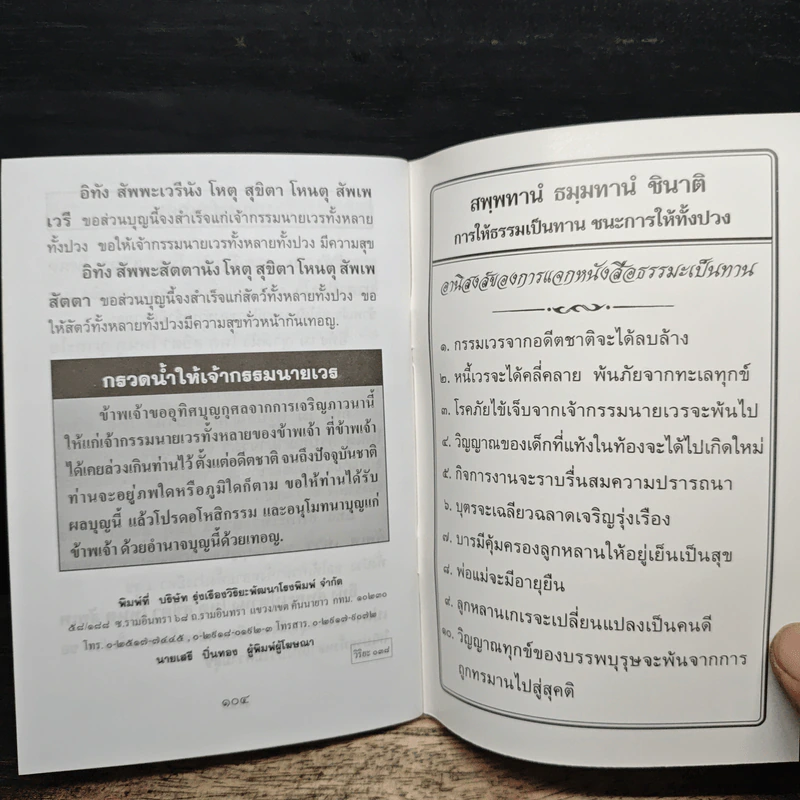 อิทัง สัพพะเวรีนัง โหตุ สุขิตา โหนตุ สัพเพ
เวรี ขอส่วนบุญนี้จงสำเร็จแก่เจ้ากรรมนายเวรทั้งหลาย
ทั้งปวง ขอให้เจ้ากรรมนายเวรทั้งหลายทั้งปวง มีความสุข
อิทัง สัพพะสัตตานัง โหตุ สุขิตา โหนตุ สัพเพ
สัตตา ขอส่วนบุญนี้จงสำเร็จแก่สัตว์ทั้งหลายทั้งปวง ขอ
ให้สัตว์ทั้งหลายทั้งปวงมีความสุขทั่วหน้ากันเทอญ.
กรวดน้ำให้เจ้ากรรมนายเวร
ข้าพเจ้าขออุทิศบุญกุศลจากการเจริญภาวนานี้
ให้แก่เจ้ากรรมนายเวรทั้งหลายของข้าพเจ้า ที่ข้าพเจ้า
ได้เคยล่วงเกินท่านไว้ ตั้งแต่อดีตชาติ จนถึงปัจจุบันชาติ
ท่านจะอยู่ภพใดหรือภูมิใดก็ตาม ขอให้ท่านได้รับ
ผลบุญนี้ แล้วโปรดอโหสิกรรม และอนุโมทนาบุญแก่
ข้าพเจ้า ด้วยอำนาจบุญนี้ด้วยเทอญ.
พิมพ์ที่ บริษัท รุ่งเรืองวิริยะพัฒนาโรงพิมพ์ จำกัด
๕๘/๑๘๘ ซ.รามอินทรา ๖๘ ถ.รามอินทรา แขวง/เขต คันนายาว กทม. ๑๐๒๓๐
โทร. ๐-๒๕๑๗-๗๔๔๕ , ๐-๒๙๑๘-๐๑๙๒-๓ โทรสาร. ๐-๒๙๑๗-๙๐๗๒
นายเสรี ปิ่นทอง ผู้พิมพ์ผู้โฆษณา
วิริยะ ๐๓๘
๑๐๔
สพฺพทานํ ธมฺมทานํ ชินาติ
การให้ธรรมเป็นทาน ชนะการให้ทั้งปวง
อานิสงส์ของการแจกหนังสือธรรมะเป็นทาน
๑. กรรมเวรจากอดีตชาติจะได้ลบล้าง
๒. หนี้เวรจะได้คลี่คลาย พ้นภัยจากทะเลทุกข์
๓. โรคภัยไข้เจ็บจากเจ้ากรรมนายเวรจะพ้นไป
๔. วิญญาณของเด็กที่แท้งในท้องจะได้ไปเกิดใหม่
๕. กิจการงานจะราบรื่นสมความปรารถนา
๖. บุตรจะเฉลียวฉลาดเจริญรุ่งเรือง
๗. บารมีคุ้มครองลูกหลานให้อยู่เย็นเป็นสุข
๘. พ่อแม่จะมีอายุยืน
๙. ลูกหลานเกเรจะเปลี่ยนแปลงเป็นคนดี
๑๐. วิญญาณทุกข์ของบรรพบุรุษจะพ้นจากการ
ถูกทรมานไปสู่สุคติ